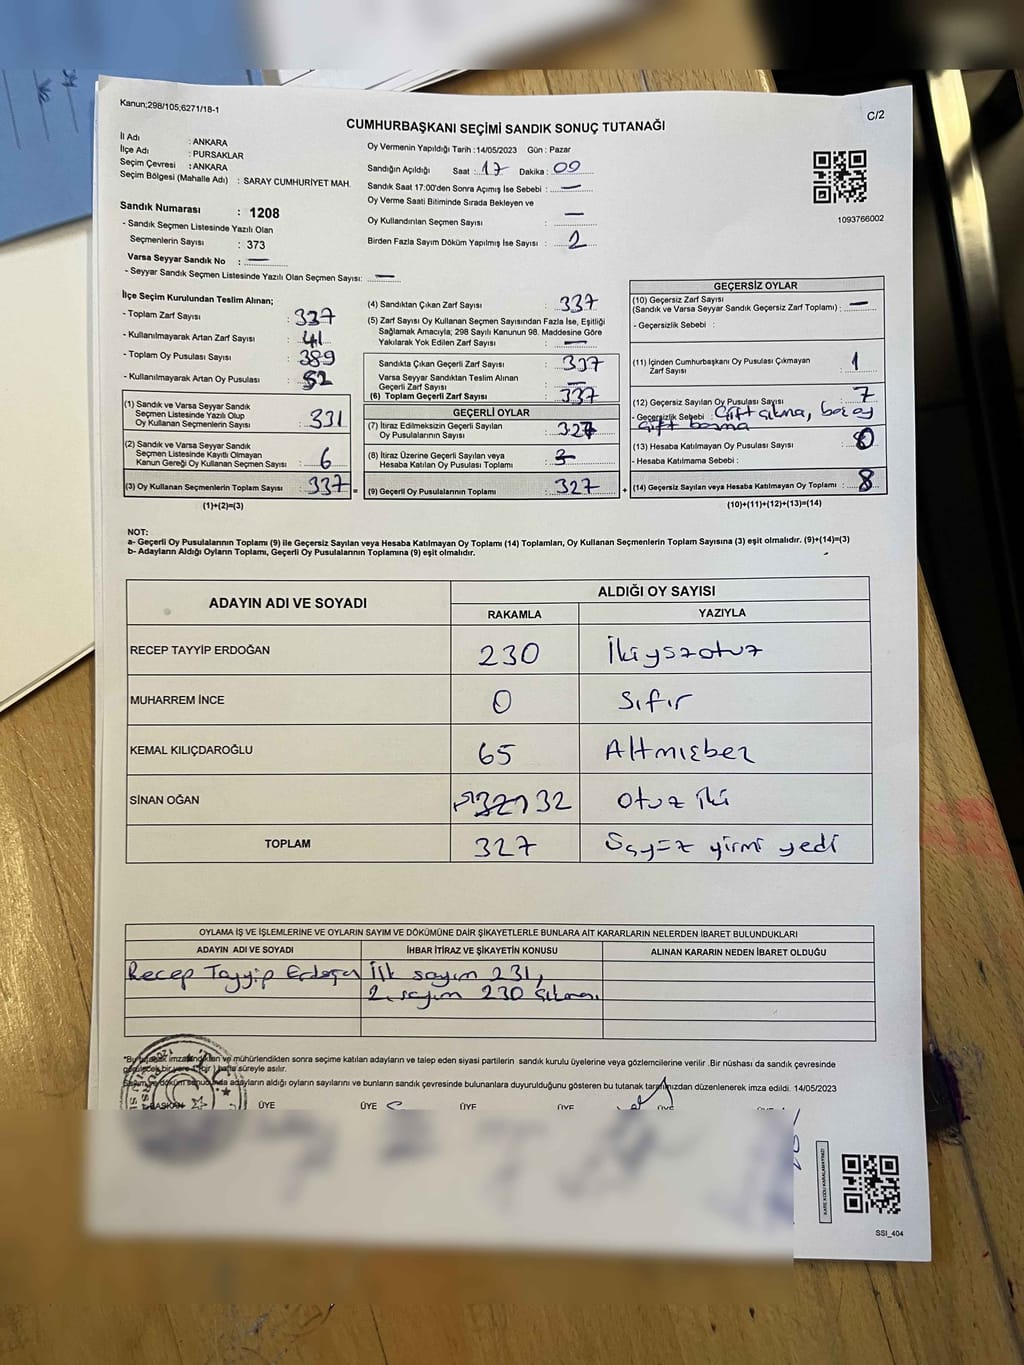 Kanun;298/105;6271/18-1
C/2
CUMHURBAŞKANI SEÇİMİ SANDIK SONUÇ TUTANAĞI
İl Adı : ANKARA
İlçe Adı : PURSAKLAR
Seçim Çevresi : ANKARA
Seçim Bölgesi (Mahalle Adı) : SARAY CUMHURİYET MAH.
Sandık Numarası : 1208
- Sandık Seçmen Listesinde Yazılı Olan
Seçmenlerin Sayısı : 373
Varsa Seyyar Sandık No : —
- Seyyar Sandık Seçmen Listesinde Yazılı Olan Seçmen Sayısı: —
Oy Vermenin Yapıldığı Tarih :14/05/2023 Gün : Pazar
Sandığın Açıldığı Saat : 17 Dakika : 09
Sandık Saat 17:00'den Sonra Açımış İse Sebebi : —
Oy Verme Saati Bitiminde Sırada Bekleyen ve
Oy Kullandırılan Seçmen Sayısı : —
Birden Fazla Sayım Döküm Yapılmış İse Sayısı : 2
1093766002
İlçe Seçim Kurulundan Teslim Alınan;
- Toplam Zarf Sayısı : 337
- Kullanılmayarak Artan Zarf Sayısı : 41
- Toplam Oy Pusulası Sayısı : 389
- Kullanılmayarak Artan Oy Pusulası : 52
(1) Sandık ve Varsa Seyyar Sandık
Seçmen Listesinde Yazılı Olup
Oy Kullanan Seçmenlerin Sayısı : 331
(2) Sandık ve Varsa Seyyar Sandık
Seçmen Listesinde Kayıtlı Olmayan
Kanun Gereği Oy Kullanan Seçmen Sayısı : 6
(3) Oy Kullanan Seçmenlerin Toplam Sayısı : 337
(1)+(2)=(3)
(4) Sandıktan Çıkan Zarf Sayısı : 337
(5) Zarf Sayısı Oy Kullanan Seçmen Sayısından Fazla İse, Eşitliği
Sağlamak Amacıyla; 298 Sayılı Kanunun 98. Maddesine Göre
Yakılarak Yok Edilen Zarf Sayısı : —
Sandıkta Çıkan Geçerli Zarf Sayısı : 337
Varsa Seyyar Sandıktan Teslim Alınan
Geçerli Zarf Sayısı : —
(6) Toplam Geçerli Zarf Sayısı : 337
GEÇERLİ OYLAR
(7) İtiraz Edilmeksizin Geçerli Sayılan
Oy Pusulasının Sayısı : 327
(8) İtiraz Üzerine Geçerli Sayılan veya
Hesaba Katılan Oy Pusulası Toplamı :
(9) Geçerli Oy Pusulalarının Toplamı : 327
GEÇERSİZ OYLAR
(10) Geçersiz Zarf Sayısı
(Sandık ve Varsa Seyyar Sandık Geçersiz Zarf Toplamı) : —
- Geçersizlik Sebebi :
(11) İçinden Cumhurbaşkanı Oy Pusulası Çıkmayan
Zarf Sayısı : 1
(12) Geçersiz Sayılan Oy Pusulası Sayısı : 7
- Geçersizlik Sebebi : Çift çıkma, boş oy
çift basma
(13) Hesaba Katılmayan Oy Pusulası Sayısı : 0
- Hesaba Katılmama Sebebi :
(14) Geçersiz Sayılan veya Hesaba Katılmayan Oy Toplamı : 8
(10)+(11)+(12)+(13)=(14)
NOT:
a- Geçerli Oy Pusulalarının Toplamı (9) ile Geçersiz Sayılan veya Hesaba Katılmayan Oy Toplamı (14) Toplamları, Oy Kullanan Seçmenlerin Toplam Sayısına (3) eşit olmalıdır. (9)+(14)=(3)
b- Adayların Aldığı Oyların Toplamı, Geçerli Oy Pusulalarının Toplamına (9) eşit olmalıdır.
ADAYIN ADI VE SOYADI
ALDIĞI OY SAYISI
RAKAMLA YAZIYLA
RECEP TAYYİP ERDOĞAN 230 İkiyüzotuz
MUHARREM İNCE 0 Sıfır
KEMAL KILIÇDAROĞLU 65 Altmışbeş
SİNAN OĞAN 32 Otuz iki
TOPLAM 327 Üçyüz yirmi yedi
OYLAMA İŞ VE İŞLEMLERİNE VE OYLARIN SAYIM VE DÖKÜMÜNE DAİR ŞİKAYETLERLE BUNLARA AİT KARARLARIN NELERDEN İBARET BULUNDUKLARI
ADAYIN ADI VE SOYADI İHBAR İTİRAZ VE ŞİKAYETİN KONUSU ALINAN KARARIN NEDEN İBARET OLDUĞU
Recep Tayyip Erdoğan İlk sayım 231,
2. sayım 230 çıkması
imzalandıkten ve mühürlendikten sonra seçime katılan adayların ve talep eden siyasi partilerin sandık kurulu üyelerine veya gözlemcilerine verilir .Bir nüshası da sandık çevresinde
hafta süreyle asılır.
adayların aldığı oyların sayılarını ve bunların sandık çevresinde bulunanlara duyurulduğunu gösteren bu tutanak tarafımızdan düzenlenerek imza edildi. 14/05/2023
BAŞKAN ÜYE ÜYE ÜYE ÜYE ÜYE
SSI_404